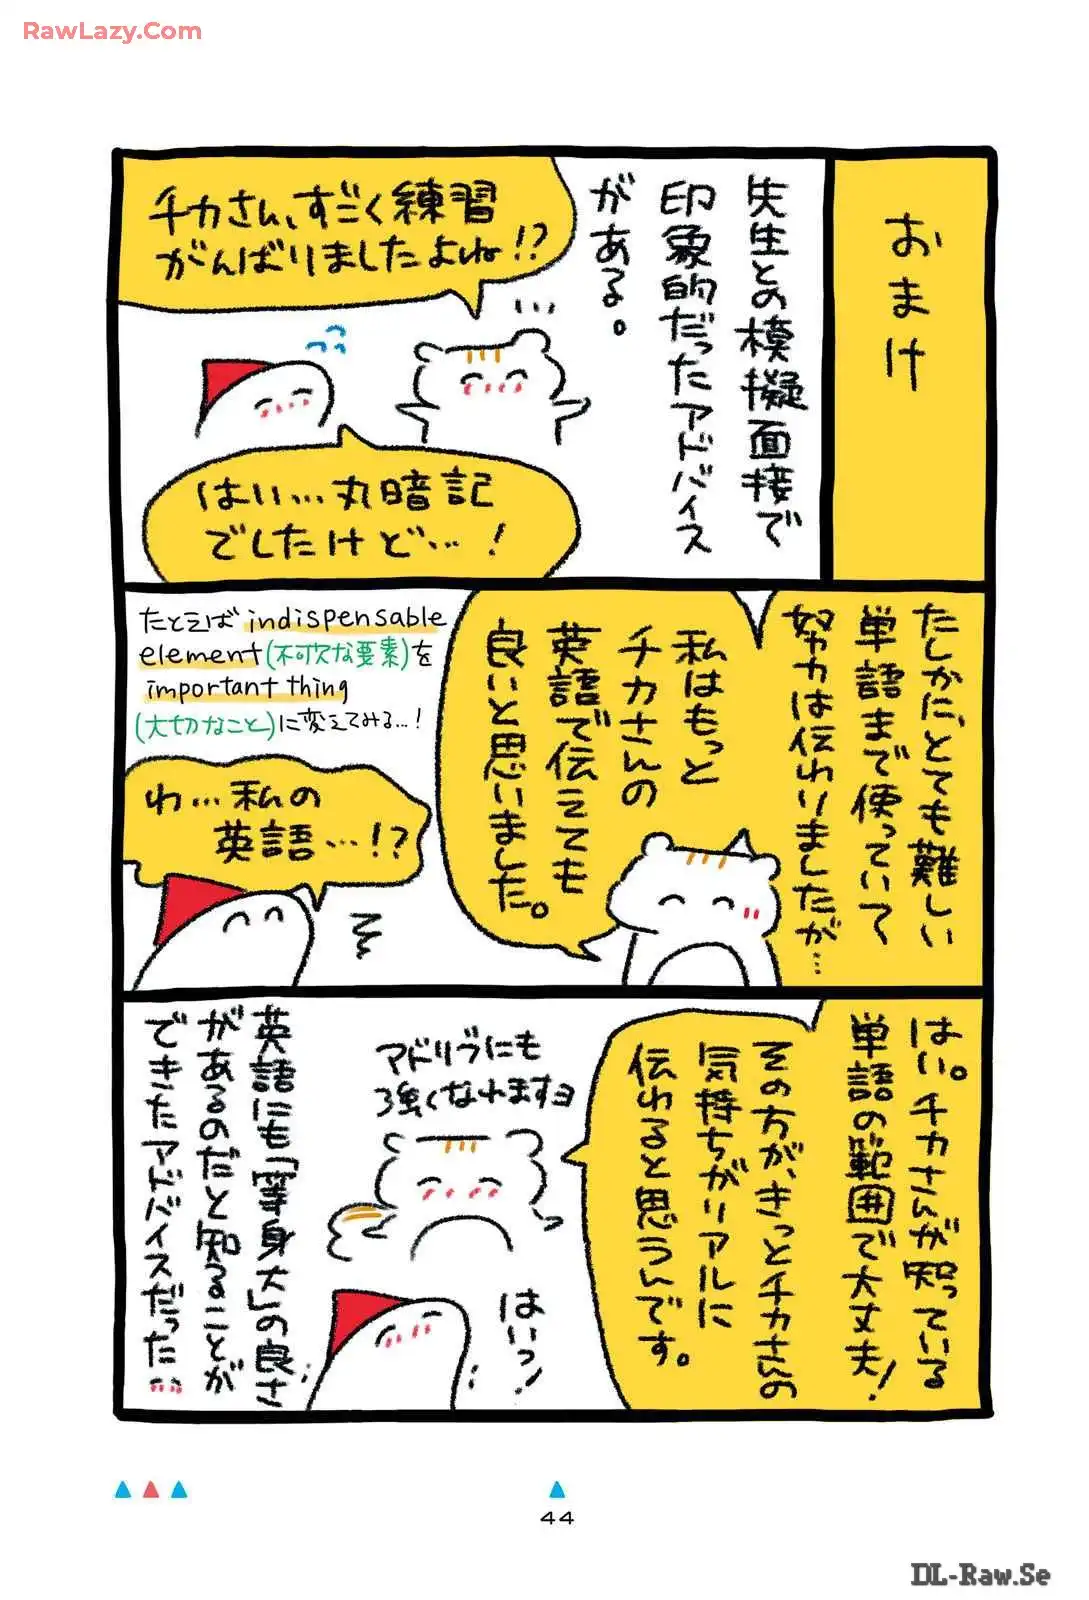 RawLazy.Com
おまけ
先生との模擬面接で
印象的だったアドバイス
がある。
チカさん、すごく練習
がんばりましたよね!?
はい…丸暗記
でしたけど…!
たしかに、とても難しい
単語まで使っていて
努力は伝わりましたが…
私はもっと
チカさんの
英語で伝えても
良いと思いました。
たとえば indispensable
element(不可欠な要素)を
important thing
(大切なこと)に変えてみる…!
わ…私の
英語…!?
はい。チカさんが知っている
単語の範囲で大丈夫!
その方が、きっとチカさんの
気持ちがリアルに
伝わると思うんです。
アドリブにも
強くなれますヨ
はいっ!
英語にも「等身大」の良さ
があるのだと知ることが
できたアドバイスだった…
44
DL-Raw.Se